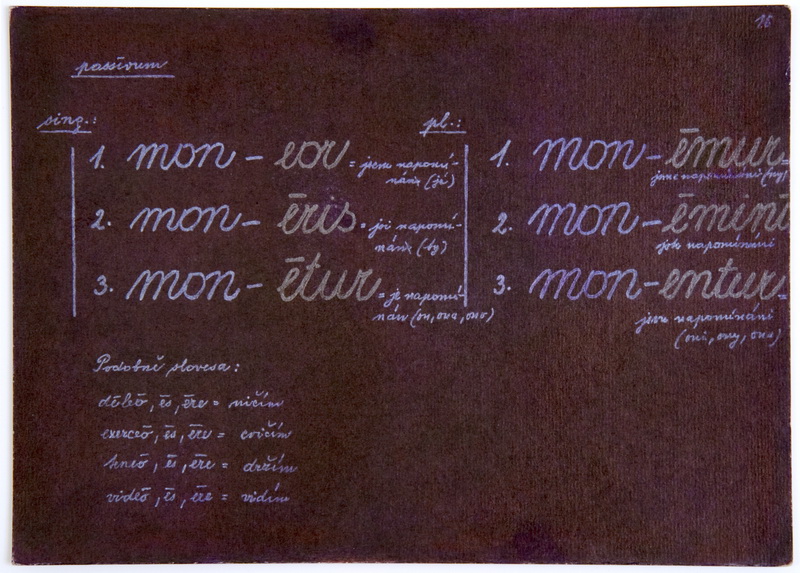 16
passivum
sing.:
1. mon – eor = jsem napomí-
nán (já)
2. mon – ēris = jsi napomí-
nán (ty)
3. mon – ētur = je napomí-
nán (on, ona, ono)
pl.:
1. mon – ēmur =
jsme napomínáni (my)
2. mon – ēminī
jste napomínáni
3. mon – entur =
jsou napomínáni
(oni, ony, ona)
Podobně slovesa:
dēleō, ēs, ēre = ničím
exerceō, ēs, ēre = cvičím
teneō, ēs, ēre = držím
videō, ēs, ēre = vidím